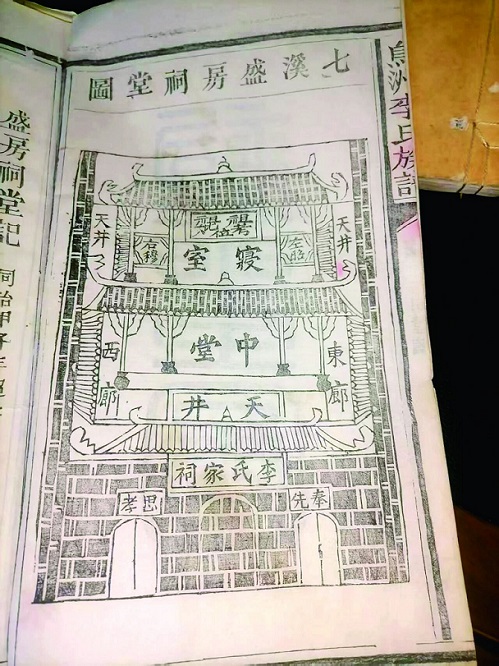 李氏族譜
七溪盛房祠堂圖
天井
天井
左昭
右穆
寢室
中堂
東廊
西廊
天井
李氏家祠
奉先
思孝
盛房祠堂記
同治甲子年